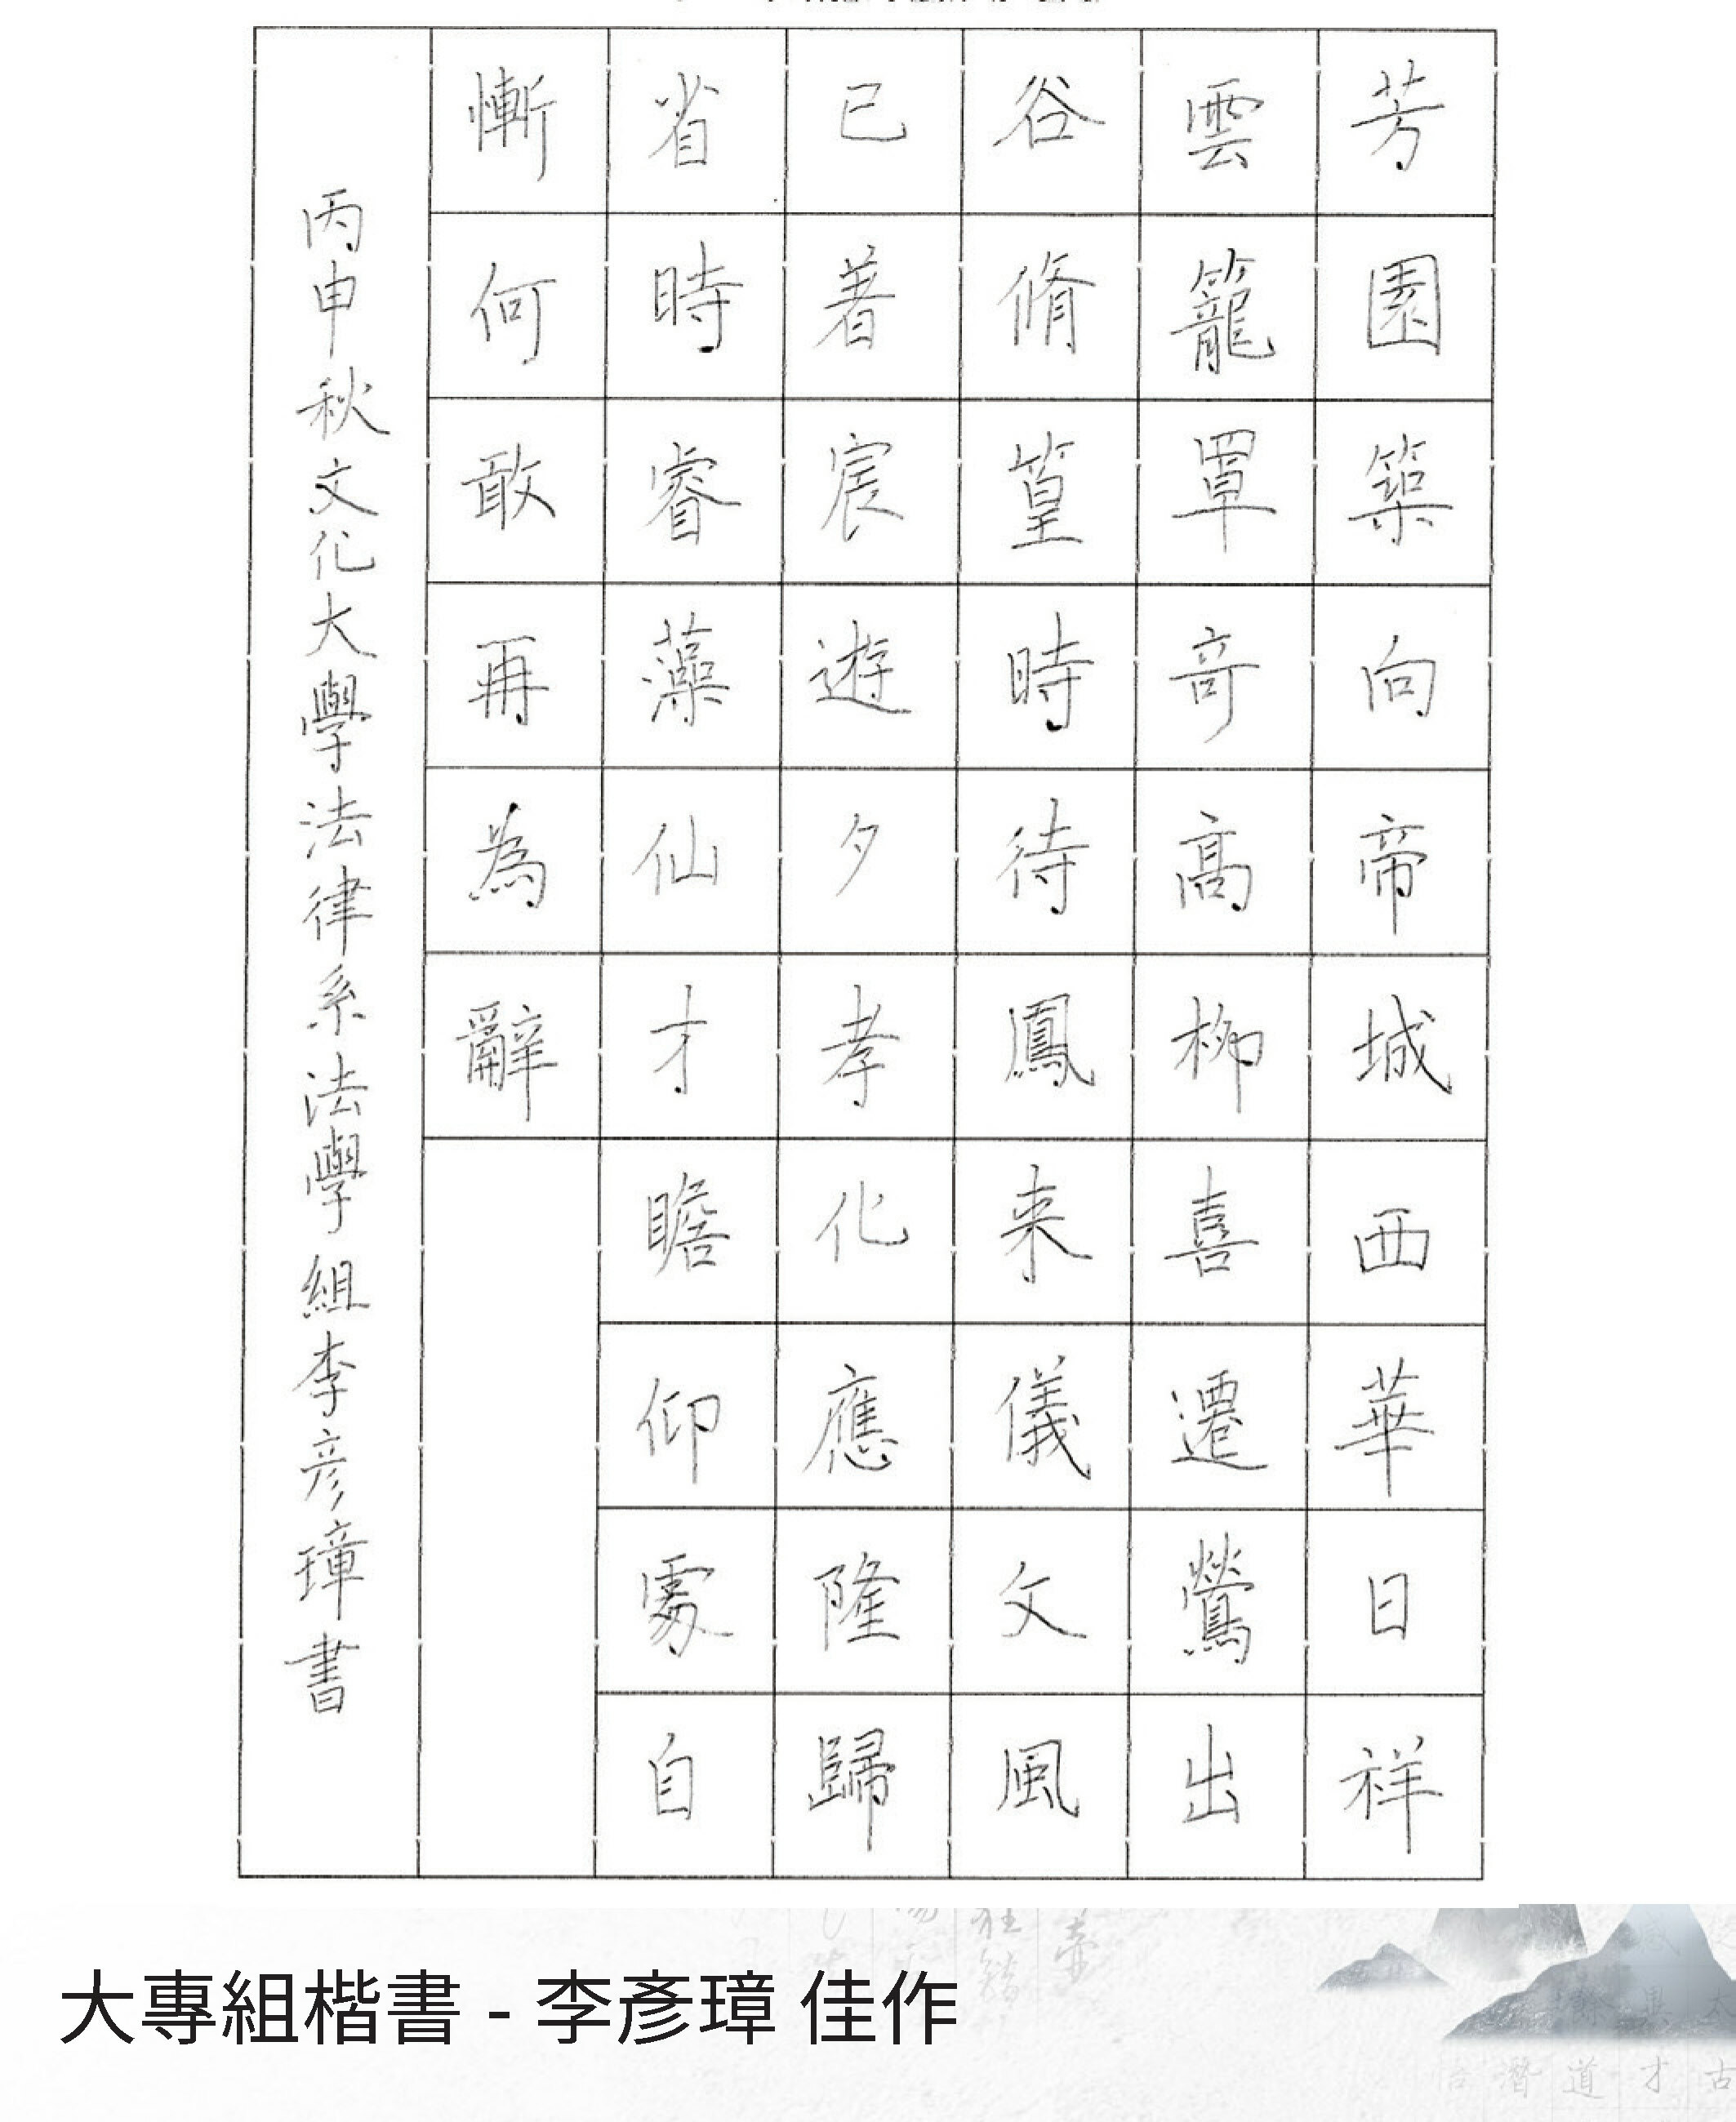 芳園築向帝城西華日祥
雲籠罩奇高柳喜遷鶯出
谷脩篁時待鳳来儀文風
已著宸遊夕孝化應隆歸
省時睿藻仙才瞻仰處自
慚何敢再為辭
丙申秋文化大學法律系法學組李彦璋書
大專組楷書 - 李彥璋 佳作